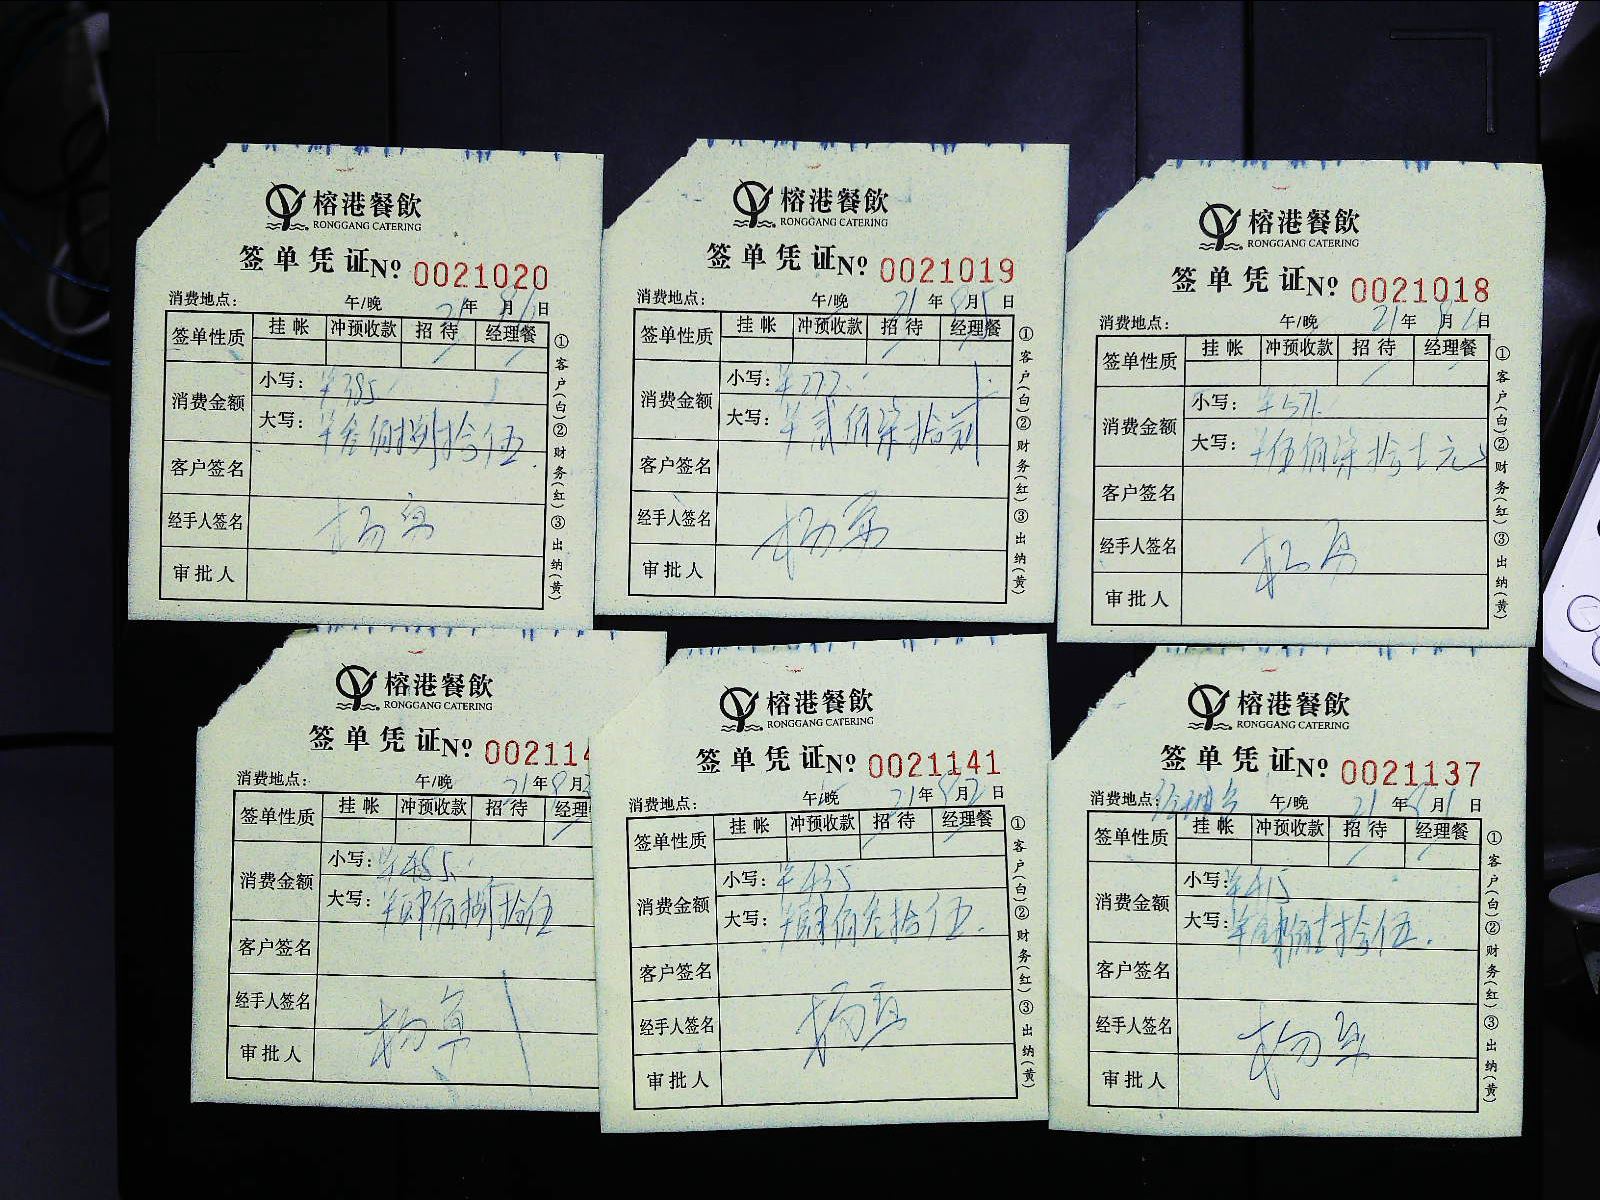 榕港餐飲
RONGGANG CATERING
签单凭证 Nº 0021020
消费地点： 午/晚 21年 月 日
签单性质 挂帐 冲预收款 招待 经理餐
消费金额 小写：¥385.
大写：¥叁佰捌拾伍
客户签名
经手人签名
审批人
①客户(白)②财务(红)③出纳(黄)
榕港餐飲
RONGGANG CATERING
签单凭证 Nº 0021019
消费地点： 午/晚 21年8月5日
签单性质 挂帐 冲预收款 招待 经理餐
消费金额 小写：¥272.
大写：¥贰佰柒拾贰
客户签名
经手人签名
审批人
①客户(白)②财务(红)③出纳(黄)
榕港餐飲
RONGGANG CATERING
签单凭证 Nº 0021018
消费地点： 午/晚 21年8月 日
签单性质 挂帐 冲预收款 招待 经理餐
消费金额 小写：¥571.
大写：¥伍佰柒拾 元
客户签名
经手人签名
审批人
①客户(白)②财务(红)③出纳(黄)
榕港餐飲
RONGGANG CATERING
签单凭证 Nº 002114
消费地点： 午/晚 21年8月2
签单性质 挂帐 冲预收款 招待 经理
消费金额 小写：¥485.
大写：¥肆佰捌拾伍
客户签名
经手人签名 杨
审批人
榕港餐飲
RONGGANG CATERING
签单凭证 Nº 0021141
消费地点： 午/晚 21年8月2日
签单性质 挂帐 冲预收款 招待 经理餐
消费金额 小写：¥435
大写：¥肆佰叁拾伍.
客户签名
经手人签名 杨
审批人
①客户(白)②财务(红)③出纳(黄)
榕港餐飲
RONGGANG CATERING
签单凭证 Nº 0021137
消费地点： 午/晚 21年8月1日
签单性质 挂帐 冲预收款 招待 经理餐
消费金额 小写：¥415
大写：¥肆佰壹拾伍.
客户签名
经手人签名 杨
审批人
①客户(白)②财务(红)③出纳(黄)